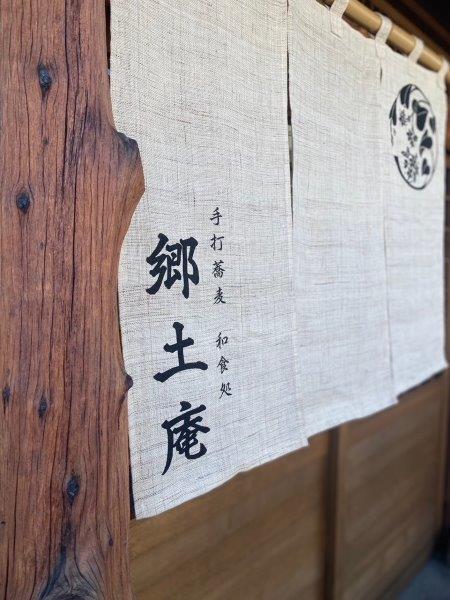 手打蕎麦 和食処
郷土庵